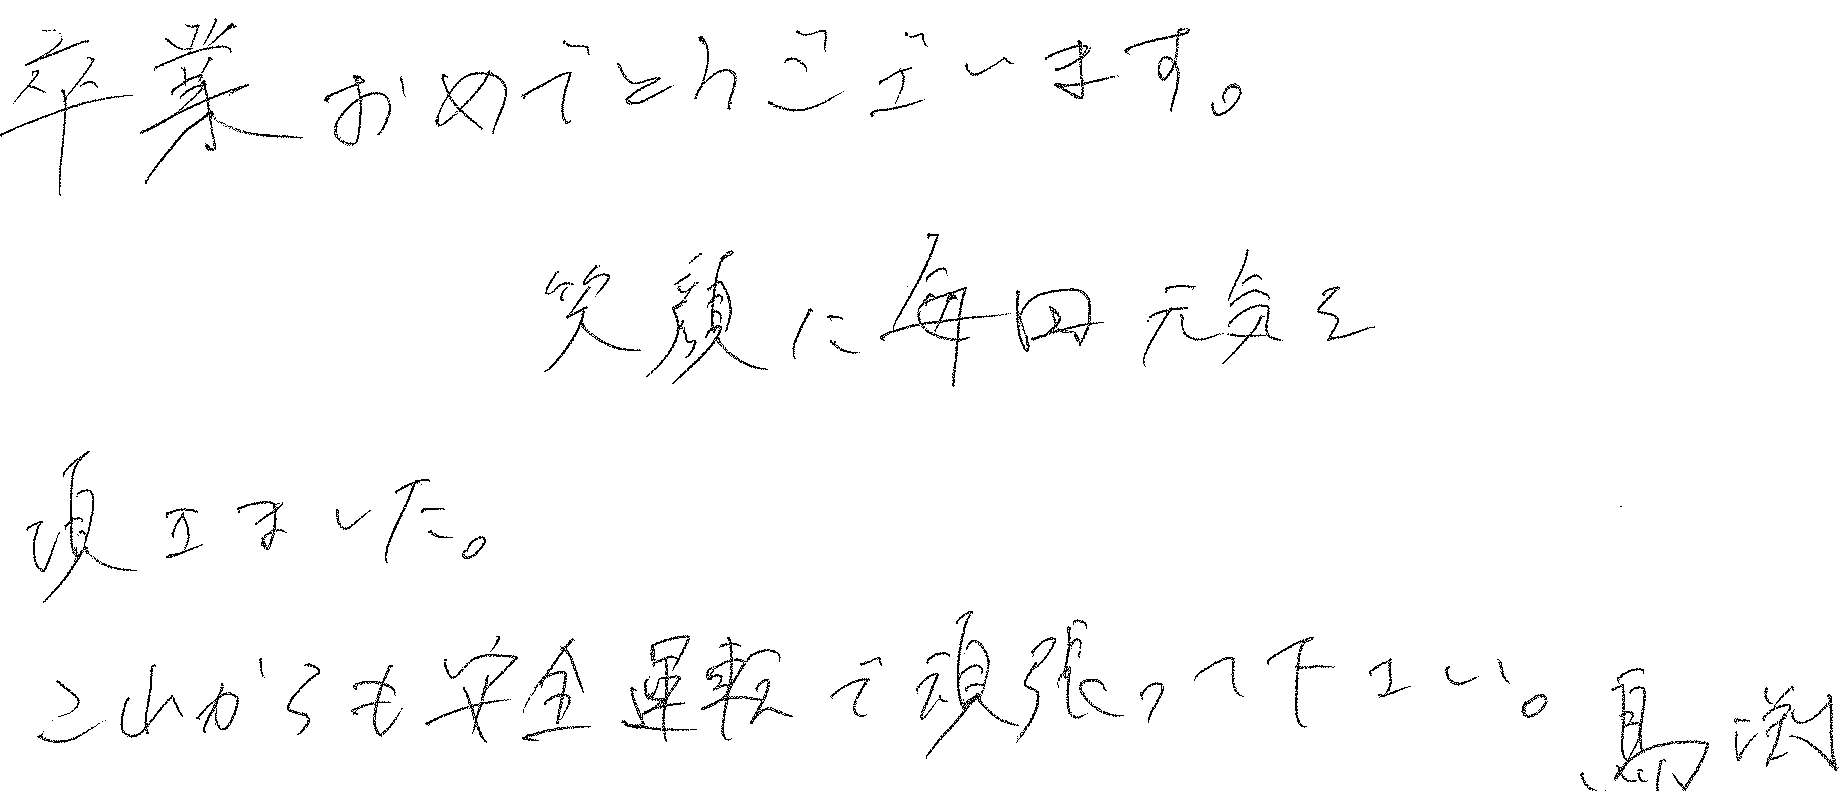 卒業おめでとうございます。
笑顔に毎回元気を
頂きました。
これからも安全運転で頑張って下さい。馬渕